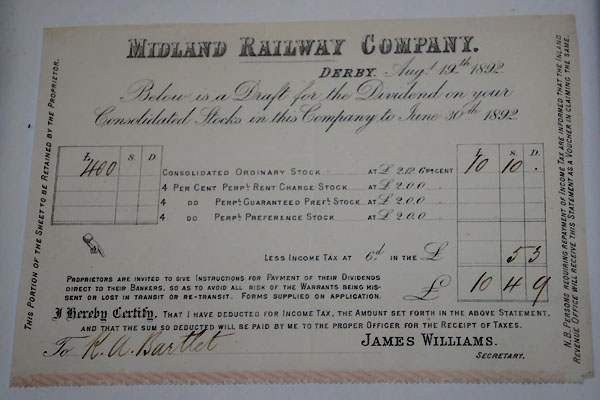 MIDLAND RAILWAY COMPANY.
DERBY. Augt 19th 1892
Below is a Draft for the Dividend on your
Consolidated Stocks in this Company to June 30th 1892.
£ S. D. £ S. D.
400 CONSOLIDATED ORDINARY STOCK AT £2.12.6 PER CENT 10 10 .
4 PER CENT PERPL. RENT CHARGE STOCK AT £2.0.0
4 DO PERPL. GUARANTEED PREFE. STOCK AT £2.0.0
4 DO PERPL. PREFERENCE STOCK AT £2.0.0
LESS INCOME TAX AT 6d. IN THE £ 5 3
£ 10 4 9
PROPRIETORS ARE INVITED TO GIVE INSTRUCTIONS FOR PAYMENT OF THEIR DIVIDENDS
DIRECT TO THEIR BANKERS, SO AS TO AVOID ALL RISK OF THE WARRANTS BEING MIS-
SENT OR LOST IN TRANSIT OR RE-TRANSIT. FORMS SUPPLIED ON APPLICATION.
I Hereby Certify, THAT I HAVE DEDUCTED FOR INCOME TAX, THE AMOUNT SET FORTH IN THE ABOVE STATEMENT,
AND THAT THE SUM SO DEDUCTED WILL BE PAID BY ME TO THE PROPER OFFICER FOR THE RECEIPT OF TAXES.
To R. A. Bartlet JAMES WILLIAMS.
SECRETARY.
THIS PORTION OF THE SHEET TO BE RETAINED BY THE PROPRIETOR.
N.B. PERSONS REQUIRING REPAYMENT OF INCOME TAX ARE INFORMED THAT THE INLAND
REVENUE OFFICE WILL RECEIVE THIS STATEMENT AS A VOUCHER IN CLAIMING THE SAME.